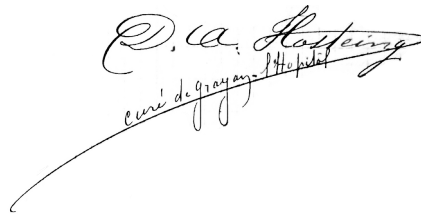 D. A. Hosteing
curé de grayan-l'Hopital